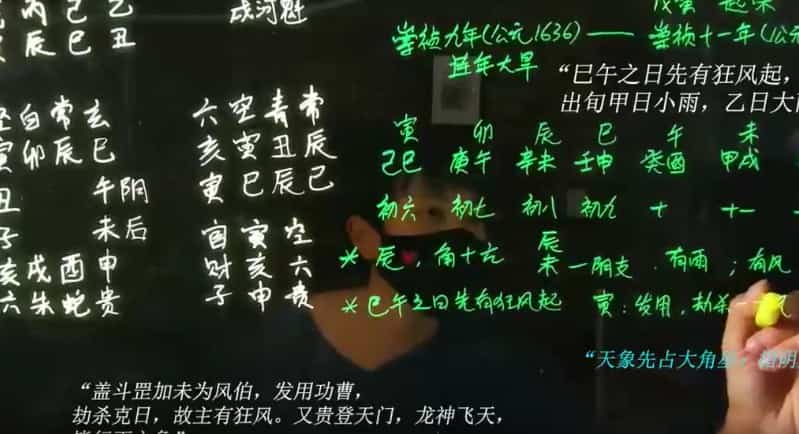 丙己乙
辰巳丑
戌河魁
崇祯九年(公元1636)——崇祯十一年(公元
连年大旱
“巳午之日先有狂风起，
出旬甲日小雨，乙日大
白常玄
寅卯辰巳
丑 午阴
子 未后
亥戌酉申
六朱蛇贵
六空青常
亥寅丑辰
寅巳辰巳
官寅空
财亥六
子申贵
寅 卯 辰 巳 午 未
己巳 庚午 辛未 壬申 癸酉 甲戌
初六 初七 初八 初九 十 十一
＊辰，角十六 辰未一阴支．有雨；有风
＊巳午之日先有狂风起 寅：发用，劫杀
“天象先占大角星，诸阴
“盖斗罡加未为风伯，发用功曹，
劫杀克日，故主有狂风。又贵登天门，龙神飞天，